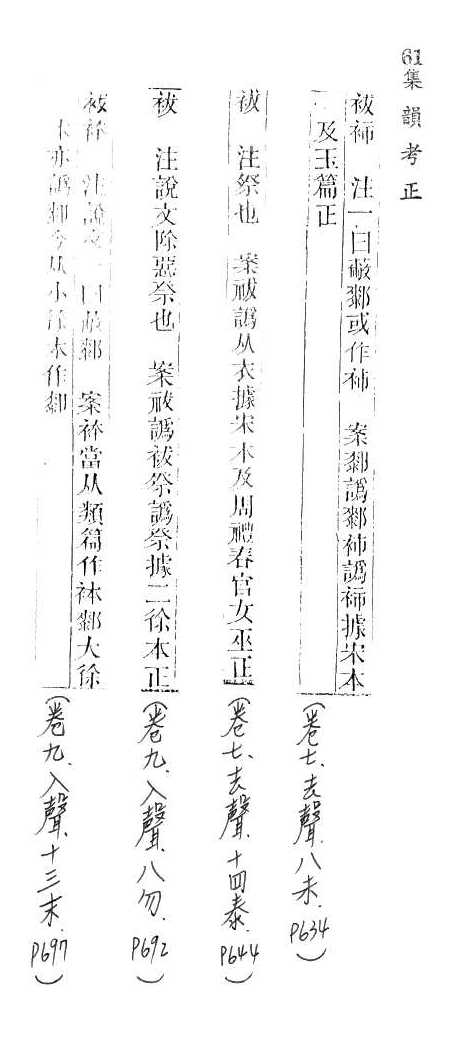 61集韻考正
袚䄶 注一曰蔽䣛或作䄶 案䣛譌䣛䄶譌䄶據宋本
及玉篇正
(卷七、去聲、八未、P634)
祓 注祭也 案祓譌从衣據宋本及周禮春官女巫正
(卷七、去聲、十四泰、P644)
祓 注說文除惡祭也 案祓譌袚祭譌祭據二徐本正
(卷九、入聲、八勿、P692)
袚 注說文一曰蔽䣛 案當从類篇作袜䣛大徐
亦譌䣛今从小徐本作䣛
(卷九、入聲、十三末、P697)